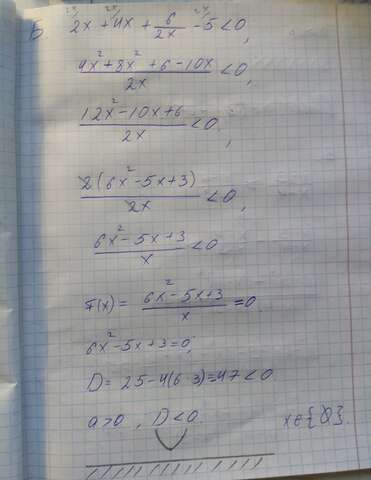 Б 2x + 4x + 6/2x - 5 < 0,
(4x² + 8x² + 6 - 10x)/2x < 0,
(12x² - 10x + 6)/2x < 0,
2(6x² - 5x + 3)/2x < 0,
(6x² - 5x + 3)/x < 0
F(x) = (6x² - 5x + 3)/x = 0
6x² - 5x + 3 = 0,
D = 25 - 4(6·3) = 47 < 0
a > 0, D < 0. x ∈ {Ø}.